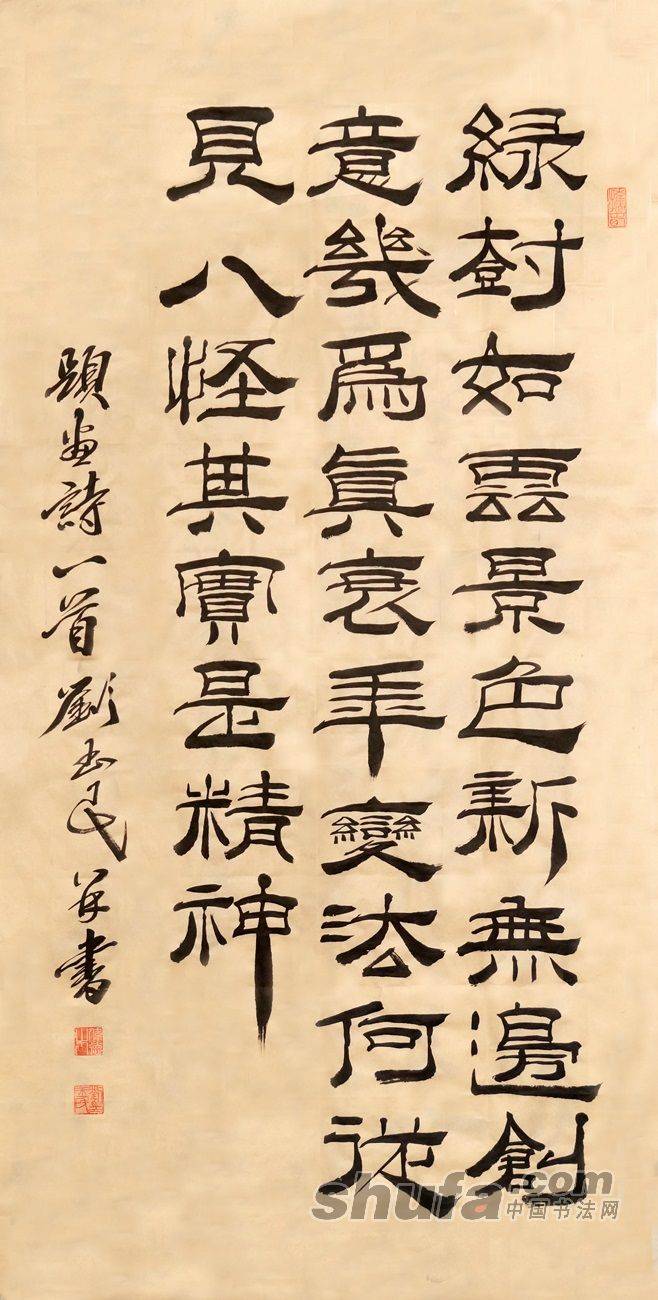 緑樹如雲景色新無邊創
意幾為真衰年變法何從
見八怪其實是精神
題畫詩一首劉玉民并書
shufa.com
中国书法网